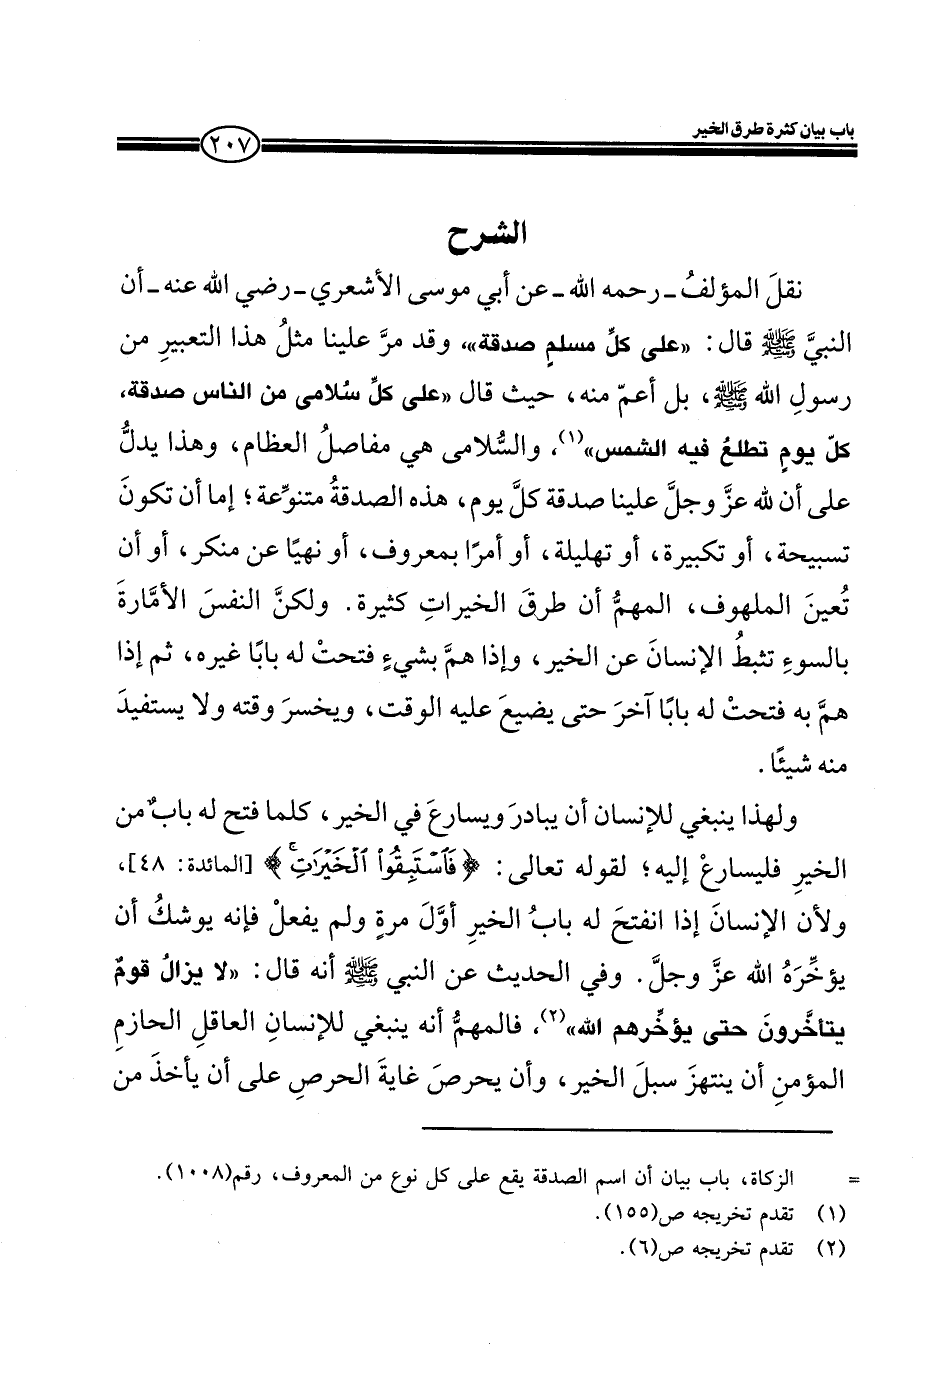 باب بيان كثرة طرق الخير
٢٠٧
الشرح
نقلَ المؤلفُ ـ رحمه الله ـ عن أبي موسى الأشعري ـ رضي الله عنه ـ أن
النبيَّ ﷺ قال: «على كلِّ مسلمٍ صدقة»، وقد مرَّ علينا مثلُ هذا التعبيرِ من
رسولِ الله ﷺ، بل أعمّ منه، حيث قال «على كلِّ سُلامى من الناس صدقة،
كلّ يومٍ تطلعُ فيه الشمس»(١)، والسُّلامى هي مفاصلُ العظام، وهذا يدلُّ
على أن لله عزَّ وجلَّ علينا صدقة كلَّ يوم، هذه الصدقةُ متنوِّعة؛ إما أن تكونَ
تسبيحة، أو تكبيرة، أو تهليلة، أو أمرًا بمعروف، أو نهيًا عن منكر، أو أن
تُعينَ الملهوف، المهمُّ أن طرقَ الخيراتِ كثيرة. ولكنَّ النفسَ الأمَّارةَ
بالسوءِ تثبطُ الإنسانَ عن الخير، وإذا همَّ بشيءٍ فتحتْ له بابًا غيره، ثم إذا
همَّ به فتحتْ له بابًا آخرَ حتى يضيعَ عليه الوقت، ويخسرَ وقته ولا يستفيدَ
منه شيئًا.
ولهذا ينبغي للإنسان أن يبادرَ ويسارعَ في الخير، كلما فتح له بابٌ من
الخيرِ فليسارعْ إليه؛ لقوله تعالى: ﴿فَٱسْتَبِقُوا۟ ٱلْخَيْرَٰتِۚ﴾ [المائدة: ٤٨]،
ولأن الإنسانَ إذا انفتحَ له بابُ الخيرِ أوَّلَ مرةٍ ولم يفعلْ فإنه يوشكُ أن
يؤخِّرَهُ الله عزَّ وجلَّ. وفي الحديث عن النبي ﷺ أنه قال: «لا يزالُ قومٌ
يتأخَّرونَ حتى يؤخِّرهم الله»(٢)، فالمهمُّ أنه ينبغي للإنسانِ العاقلِ الحازمِ
المؤمنِ أن ينتهزَ سبلَ الخير، وأن يحرصَ غايةَ الحرصِ على أن يأخذَ من
= الزكاة، باب بيان أن اسم الصدقة يقع على كل نوع من المعروف، رقم(١٠٠٨).
(١) تقدم تخريجه ص(١٥٥).
(٢) تقدم تخريجه ص(٦).